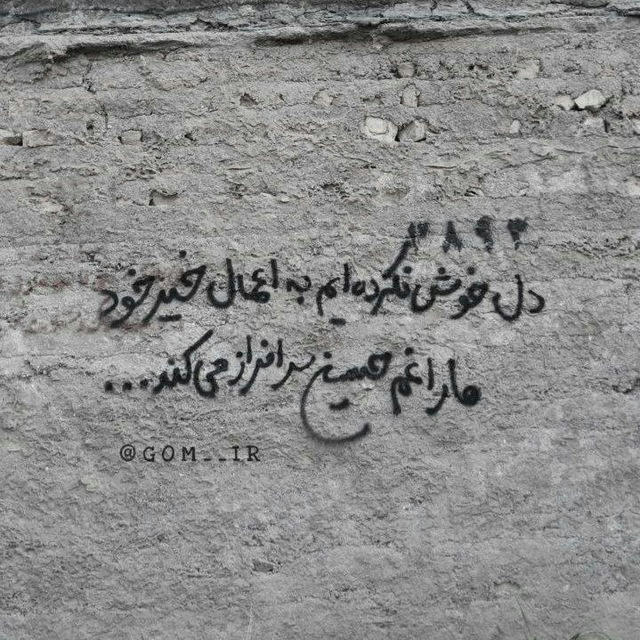 دل خوش نکرده‌ایم به اعمال خیر خود
ما را غم حسین سرافراز می‌کند...
@GOM__IR